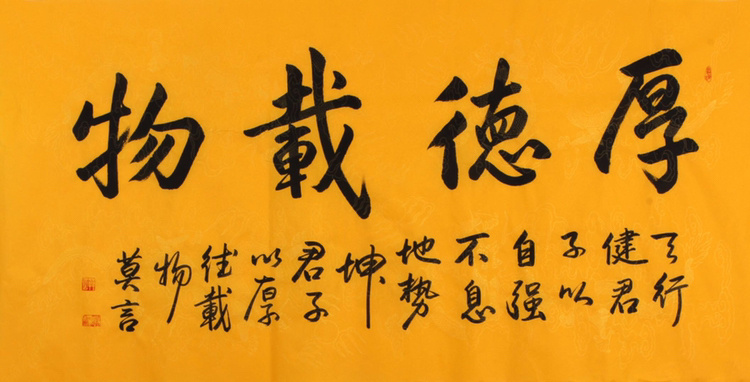 厚德載物
天行
健君
子以
自强
不息
地勢
坤
君子
以厚
德載
物
莫言